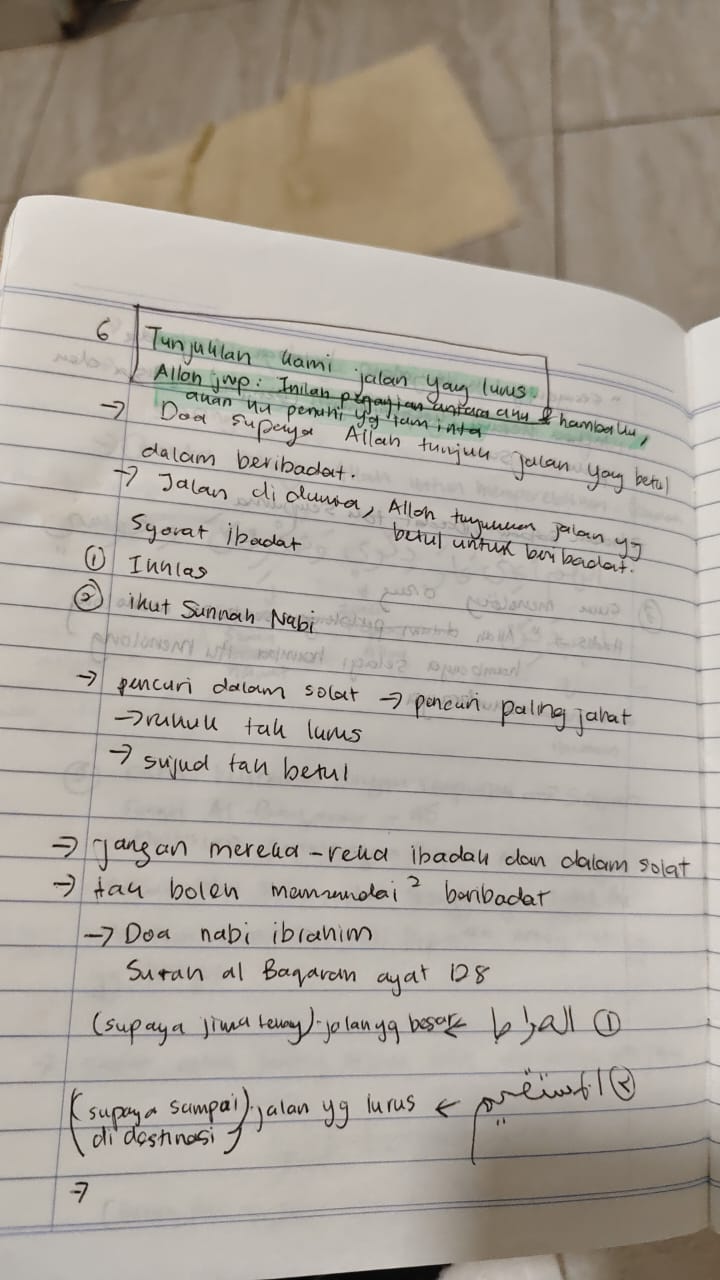 6 Tunjuklan kami jalan yang lurus.
Allah jwp: Inilah perjanjian antara aku & hambaku,
akan ku penuhi yg iam inta
→ Doa supaya Allah tunjuk jalan yang betul
dalam beribadat.
→ Jalan di dunia, Allah tunjukkan jalan yg
betul untuk beribadat.
Syarat ibadat
① Ikhlas
② ikut Sunnah Nabi
→ pencuri dalam solat → pencuri paling jahat
→ rukuk tak lurus
→ sujud tak betul
→ jangan mereka-reka ibadah dan dalam solat
→ tak boleh memandai² beribadat
→ Doa nabi ibrahim
Surah al Baqarah ayat 128
(supaya jiwa ).jalan yg besar ← الصراط ①
(supaya sampai di destinasi).jalan yg lurus ← المستقيم ②
→